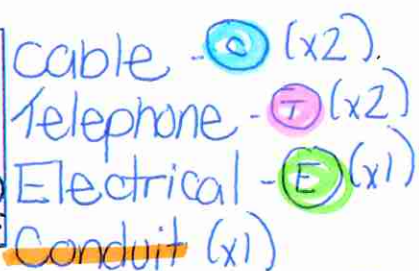 Cable - C (x2).
Telephone - T (x2)
Electrical - E (x1)
Conduit (x1)